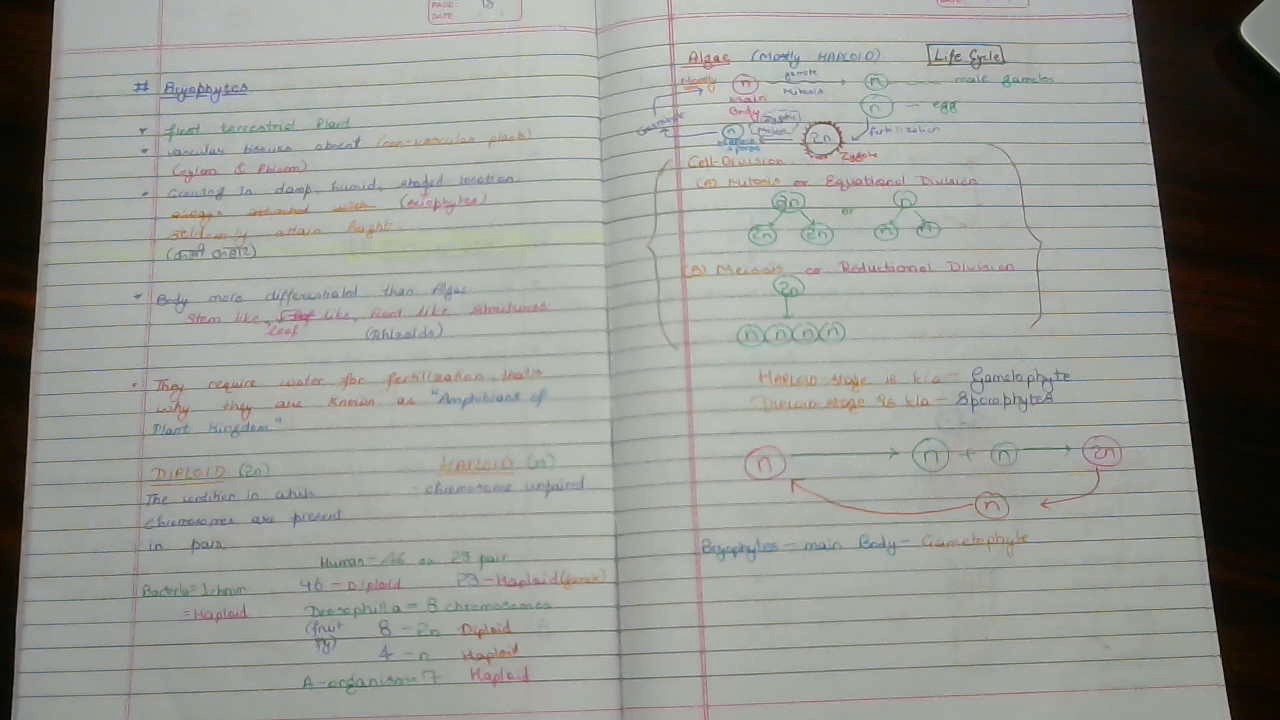 PAGE: 18
DATE
# Bryophytes
first terrestrial Plant
vascular tissues absent (non-vascular plants)
(xylem & Phloem)
Growing in damp, humid, shaded location
always attached with
seldomly attain height
Body more differentiated than Algae
Stem like, leaf like, Root like structures
(Rhizoids)
They require water for fertilization that's
why they are known as "Amphibians of
Plant Kingdom"
DIPLOID (2n)
The condition in which
chromosomes are present
in pair
HAPLOID (n)
chromosome unpaired
Human = 46 or 23 pair
46 = Diploid 23 - Haploid (gamete)
Bacteria = 1 chrom
= Haploid
Drosophilla = 8 chromosomes
(fruit fly)
8 - 2n Diploid
4 - n Haploid
A-organism = 7 Haploid
Algae (Mostly HAPLOID) Life Cycle
Mostly n gamete Mitosis n male gametes
main Body
n - egg
fertilization
2n
Zygote
n
Meiosis
Cell Division
(A) Mitosis or Equational Division
2n or n
2n 2n n n
(B) Meiosis or Reductional Division
2n
n n n n
Haploid stage is k/a - Gametophyte
Diploid stage is k/a - Sporophytes
n n + n 2n
n
Bryophytes - main Body - Gametophyte